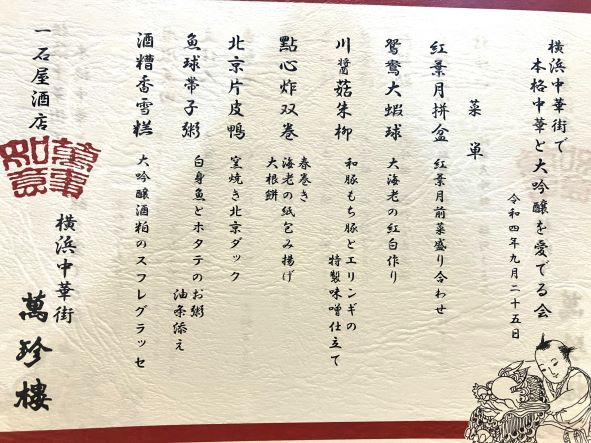 横浜中華街で
本格中華と大吟醸を愛でる会
令和四年九月二十五日
菜単
紅葉月拼盆 紅葉月前菜盛り合わせ
鴛鴦大蝦球 大海老の紅白作り
川醤菇朱柳 和豚もち豚とエリンギの
特製味噌仕立て
點心炸双巻 春巻き
海老の紙包み揚げ
大根餅
北京片皮鴨 窯焼き北京ダック
魚球帯子粥 白身魚とホタテのお粥
油条添え
酒糟香雪糕 大吟醸酒粕のスフレグラッセ
一石屋酒店
萬事
如意
横浜中華街
萬珍樓